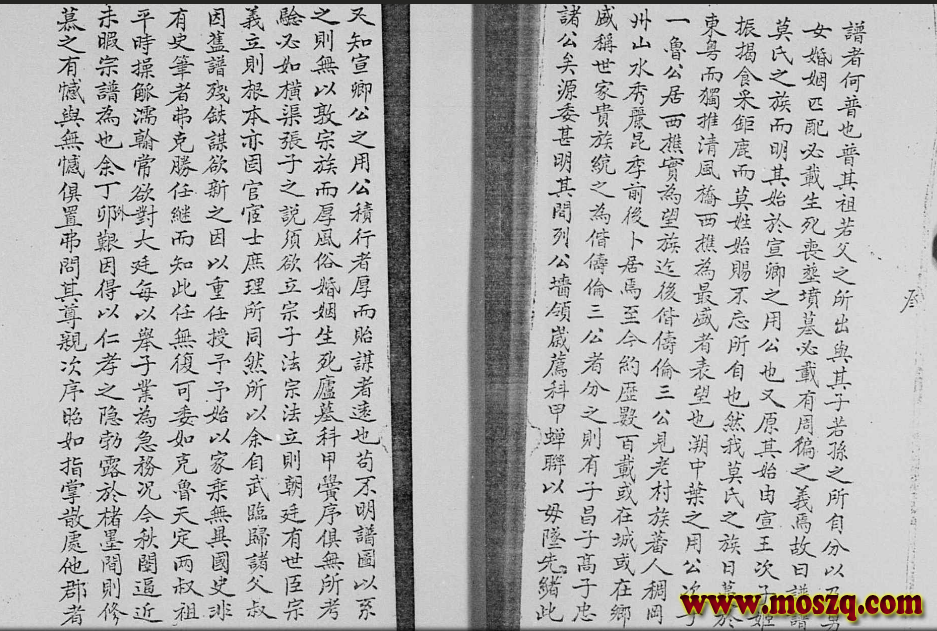 譜者何普也普其祖若父之所出與其子若孫之所自分以及男
女婚姻匹配必載生死喪塟墳墓必載有周徧之義焉故曰譜譜
莫氏之族而明其始於宣卿之用公也又原其始由宣王次子姬
振揭食采鉅鹿而莫姓始賜不忘所自也然我莫氏之族日蕃於
東粤而獨推清風橋西樵為最盛者表望也溯中葉之用公次子
一魯公居西樵實為望族迄後偕儔倫三公見老村族蕃人稠岡
州山水秀麗昆季前後卜居焉至今約歷數百載或在城或在鄉
盛稱世家貴族統之為偕儔倫三公者分之則有子昌子高子忠
諸公矣源委甚明其間列公墻領嵗薦科甲蝉聯以毋墜先緒此
又知宣卿公之用公積行者厚而貽謀者遠也苟不明譜圖以系
之則無以敦宗族而厚風俗婚姻生死廬墓科甲黌序俱無所考
驗必如橫渠張子之説須欲立宗子法宗法立則朝廷有世臣宗
義立則根本亦固官宦士庶理所同然所以余自武臨歸諸父叔
因舊譜殘缺謀欲新之因以重任授予予始以家乘無異國史非
有史筆者弗克勝任継而知此任無復可委如克魯天定兩叔祖
平時操觚濡翰常欲對大廷每以舉子業為急務况今秋闈逼近
未暇宗譜為也余丁卯外艱因得以仁孝之隐勃露於楮墨間則修
慕之有憾與無憾俱置弗問其尊親次序昭如指掌散處他郡者
www.moszq.com